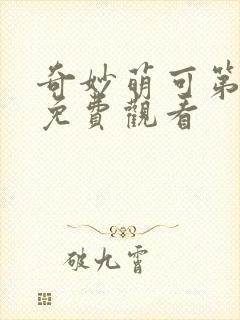 奇妙萌可第
免費觀看
破九霄